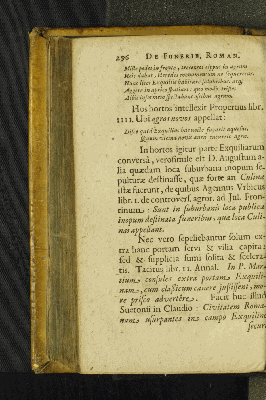 296 DE FUNERIB. ROMAN.
Mille pedes in fronte, trecentos cippus in agrum
Heic dabat, Heredes monumentum ne sequeretur.
Nunc licet Exquiliis habitare salubribus, atq;
Aggere in aprico spatiari: quo modo tristes
Albis informem spectabant ossibus agrum.
Hos hortos intellexit Propertius libr.
IIII. Ubi agros novos appellat:
Disce quid Exquilias
In hortos igitur parte Exquiliarum
conversâ, verosimile est D. Augustum a-
lia quædam loca suburbana inopum se-
pulturæ destinasse, quæ forte an Culinæ
istæ fuerunt, de quibus Aggenus Urbicus
libr. 1. de controvers. agror. ad Jul. Fron-
tinum: Sunt in suburbanis loca publica
inopum destinata funeribus, quæ loca Culi-
nas appellant.
Nec vero sepeliebantur solum ex-
tra hanc portam servi & vilia capita:
sed & supplicia sumi solita & scelera-
tis. Tacitus libr. 11. Annal. In P. Mar-
tium consules extra portam Exquili-
nam, cum classicum canere jussissent, mo-
re prisco advertêre. Facit huc illud
Suetonii in Claudio: Civitatem Roma-
nam usurpantes in campo Exquilino
securi